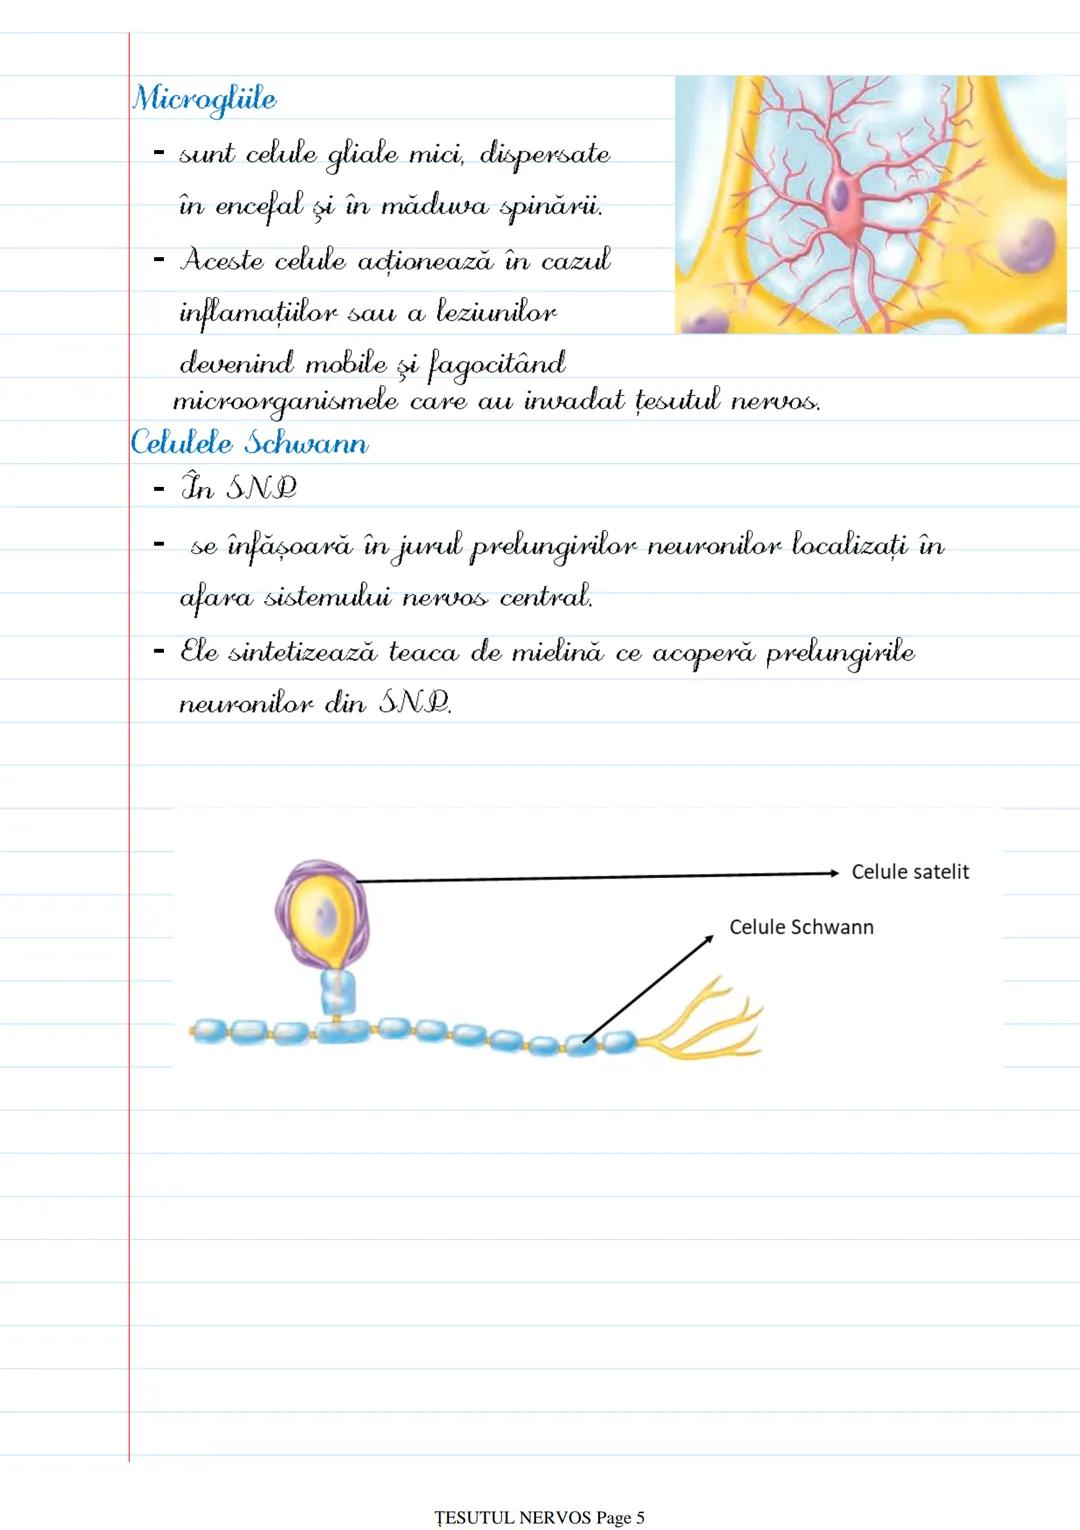 Microgliile
- sunt celule gliale mici, dispersate
în encefal și în măduva spinării.
- Aceste celule acționează în cazul
inflamațiilor sau a leziunilor
devenind mobile și fagocitând
microorganismele care au invadat țesutul nervos.
Celulele Schwann
- În SNP
- se înfășoară în jurul prelungirilor neuronilor localizați în
afara sistemului nervos central.
- Ele sintetizează teaca de mielină ce acoperă prelungirile
neuronilor din SNP.
Celule satelit
Celule Schwann
ȚESUTUL NERVOS Page 5